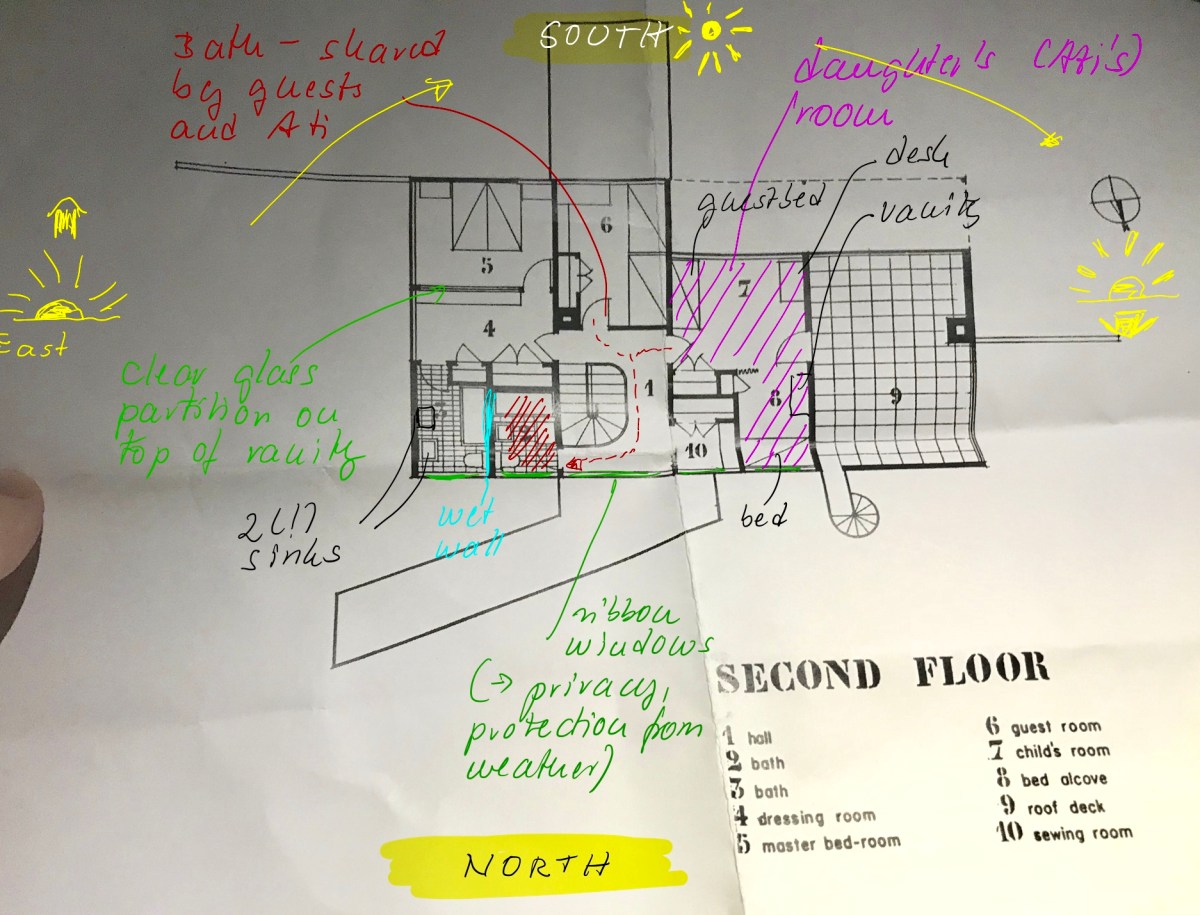 SOUTH
Bath - shared
by guests
and Ati
daughter's (Ati's)
room
desk
guestbed
vanity
6
5
7
East
4
clear glass
partition on
top of vanity
1
8
9
3
2
10
2(!)
sinks
wet
wall
bed
ribbon
windows
(→ privacy,
protection from
weather)
SECOND FLOOR
1 hall
2 bath
3 bath
4 dressing room
5 master bed-room
6 guest room
7 child's room
8 bed alcove
9 roof deck
10 sewing room
NORTH